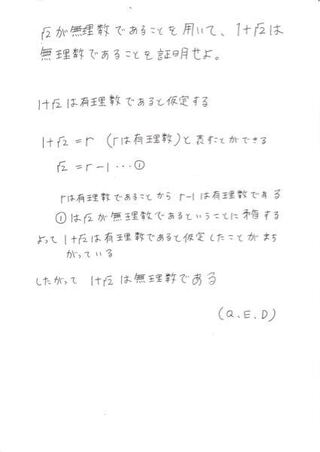 √2が無理数であることを用いて、1+√2は
無理数であることを証明せよ。
1+√2は有理数であると仮定する
1+√2 = r (rは有理数)と表すことができる
√2 = r-1 … ①
rは有理数であることから r-1は有理数である
①は√2が無理数であるということに矛盾する
よって 1+√2は有理数であると仮定したことがまち
がっている
したがって 1+√2は無理数である
(Q.E.D)